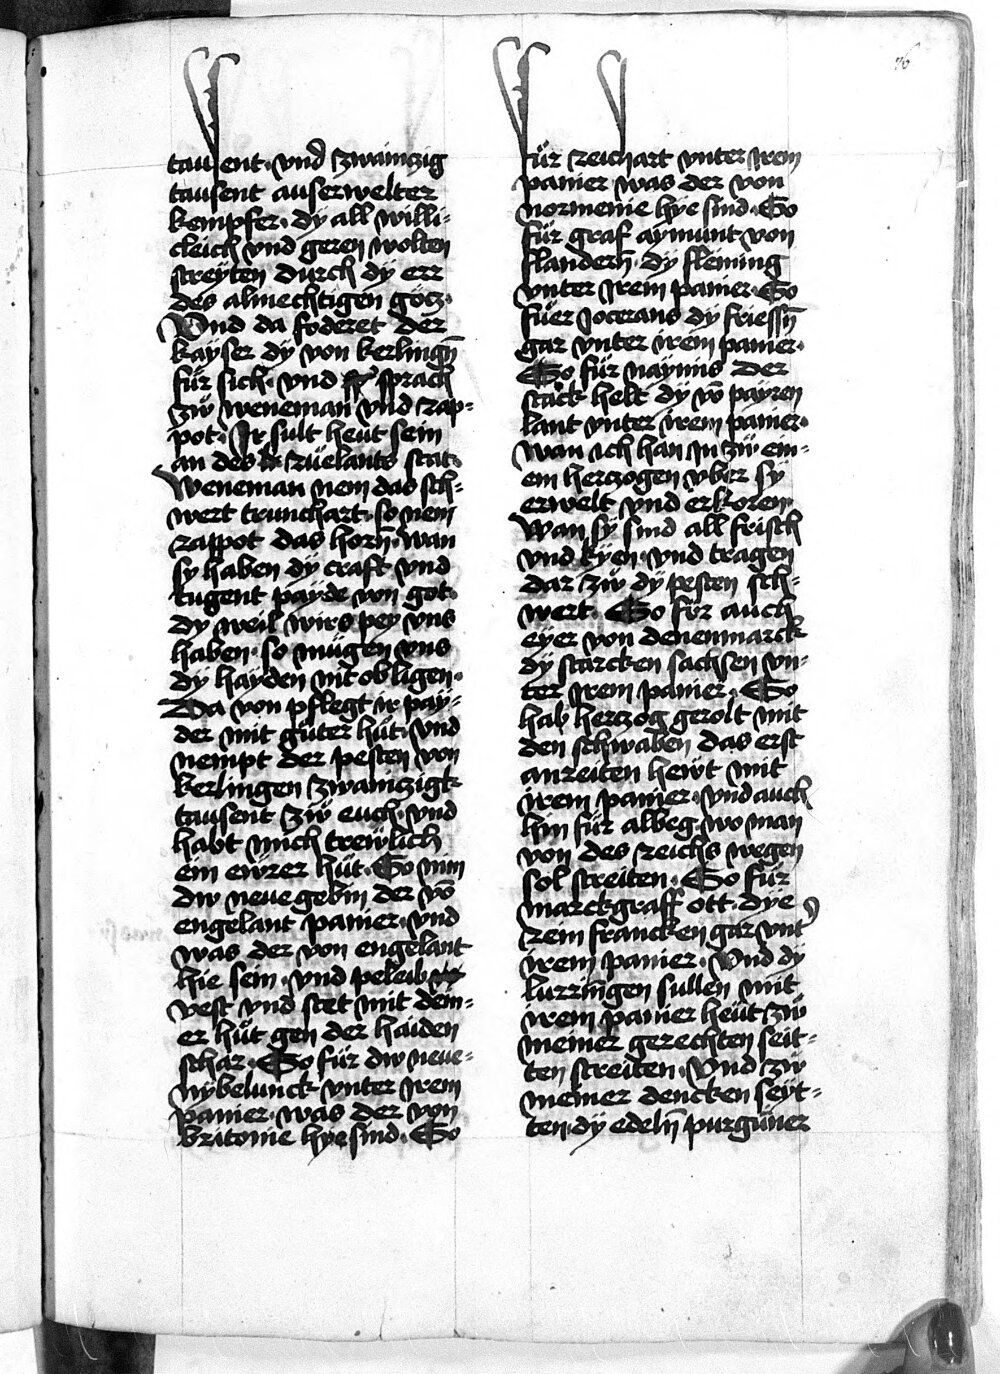 76
tausent · vnd zwainczig
tausent auserwelter
kempfer · dy all willi⸗
cleich vnd geren wolten
streyten durch dy err
des almechtigen gocz ·
Vnd da foderet der
kayser dy von kerlingn̄
für sich · vnd sprach
zw weneman vnd rap⸗
pot · Ir sult heut sein
an des rüelants stat ·
Weneman nem das sch⸗
wert trunchart · so nem
rappot das horn̄ · wan
sy haben dy craft vnd
tugent payde von got ·
dy weil wirs pey vns
haben · so mügen vns
dy hayden nit obligen ·
Da von pflegt ir pay⸗
der mit guter hüt · vnd
nempt der pesten von
kerlingen zwainzigk
tausent zw euch · vnd
habt mich trewlich
em ewrer hüt · So nim
dw neuegebin der vō
engelant panier · vnd
was der von engelant
hie sein · vnd peleib
vest vnd stet mit dein⸗
er hüt gen der haiden
schar · So für dw neue⸗
nybelunck vnter irem
panier · was der von
britonie hye sind · So
für reichart vnter irem
panier was der von
normenie hye sind · So
für graf aymunt von
flandern̄ · dy fleming
vnter irem panier · So
füer Jocerans dy friessn̄
gar vnter irem panier ·
So für naymis der
starck helt dy vō payren
lant vnter irem panier ·
wan ich han in zw ein⸗
em herczogen vber sy
erwelt vnd erkoren ·
Wan sy sind all frisch
vnd kyen · vnd tragen
dar zw dy pesten sch⸗
wert · So für auch
eyer von denenmarck
dy starcken sachsen vn⸗
ter irem panier · So
hab herczog gerolt mit
den schwaben das erst
anreiten hewt mit
irem panier · vnd auch
hin für albeg · wo man
von des reichs wegen
sol streiten · So für
marckgraff ott · dye
rein francken gar vnt
irem panier · Vnd dy
lurringen sullen mit
irem panier heüt zw
meiner gerechten seit⸗
ten streiten · Vnd zw
meiner dencken seyt⸗
ten · dy edeln̄ purgüner